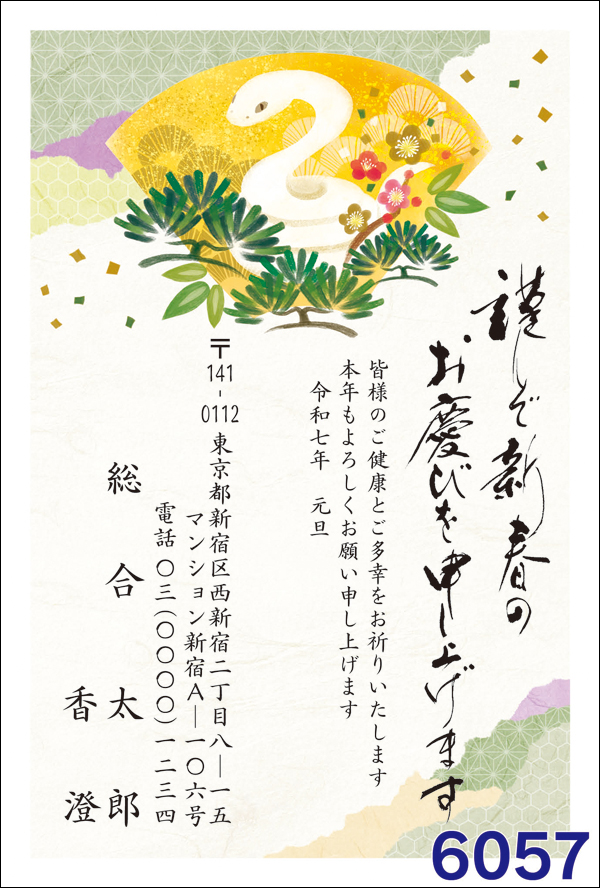 謹しんで新春の
お慶びを申し上げます
皆様のご健康とご多幸をお祈りいたします
本年もよろしくお願い申し上げます
令和七年 元旦
〒141-0112
東京都新宿区西新宿二丁目八―一五
マンション新宿A―一〇六号
電話 〇三(〇〇〇〇)一二三四
総合太郎
香澄
6057